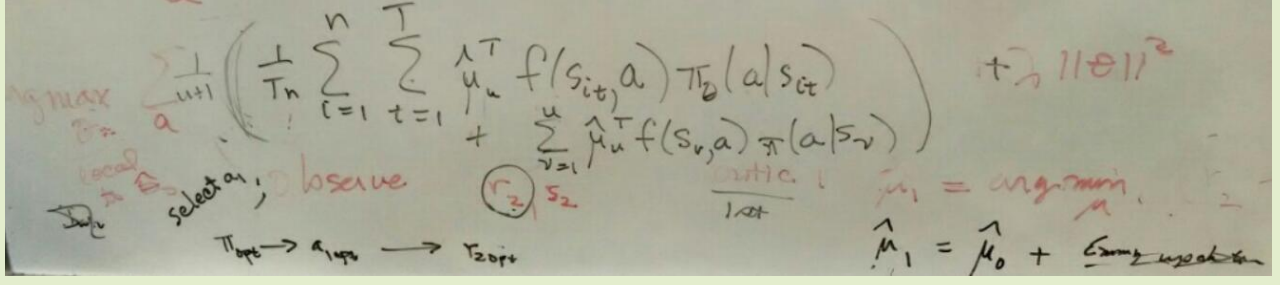 argmax Σ_a 1/(u+1) ( 1/(Tn) Σ_{i=1}^{n} Σ_{t=1}^{T} μ̂_u^T f(s_{it}, a) π_θ(a|s_{it}) + λ ||θ||²
+ Σ_{ν=1}^{u} μ̂_u^T f(s_ν, a) π(a|s_ν) )
local select a₁; observe r₂ s₂ critic μ̂₁ = argmin_μ
π_opt → a_{1opt} → r_{2opt} μ̂₁ = μ̂₀ +